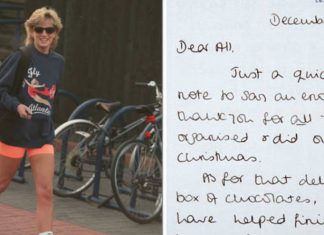 Fly
Atlantic
Decembe
Dear All,
Just a quic
note to say an eno
thank you for all
organised & did o
Christmas.
As for that del
box of chocolates,
have helped fini